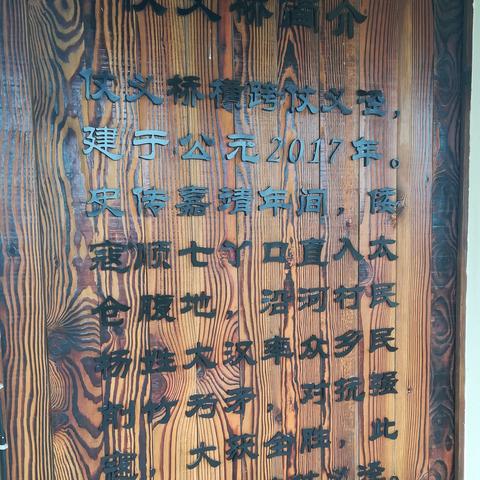 仗义桥简介
仗义桥横跨仗义泾,
建于公元2017年。
史传嘉靖年间,倭
寇顺七丫口直入太
仓腹地,沿河村民
杨姓大汉率众乡民
削竹为矛,对抗强
寇,大获全胜,此